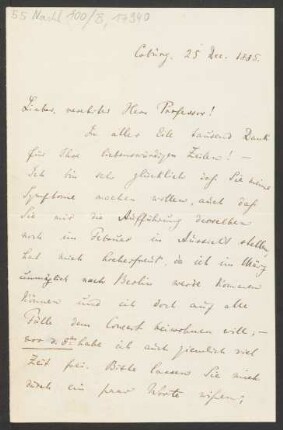 55 Nachl 100/B, 17940
Coburg, 25 Dec. 1885.
Lieber, verehrter Herr Professor!
In aller Eile tausend Dank
für Ihre liebenswürdigen Zeilen! –
Ich bin sehr glücklich daß Sie meine
Symphonie machen wollen, auch daß
Sie mir die Aufführung derselben
noch im Februar in Aussicht stellen,
hat mich hocherfreut, da ich im März
unmöglich nach Berlin werde kommen
können und ich doch auf alle
Fälle dem Concert beiwohnen will; –
habe ich auch ziemlich viel
Zeit frei. Bitte lassen Sie mich
noch ein paar Worte wissen,